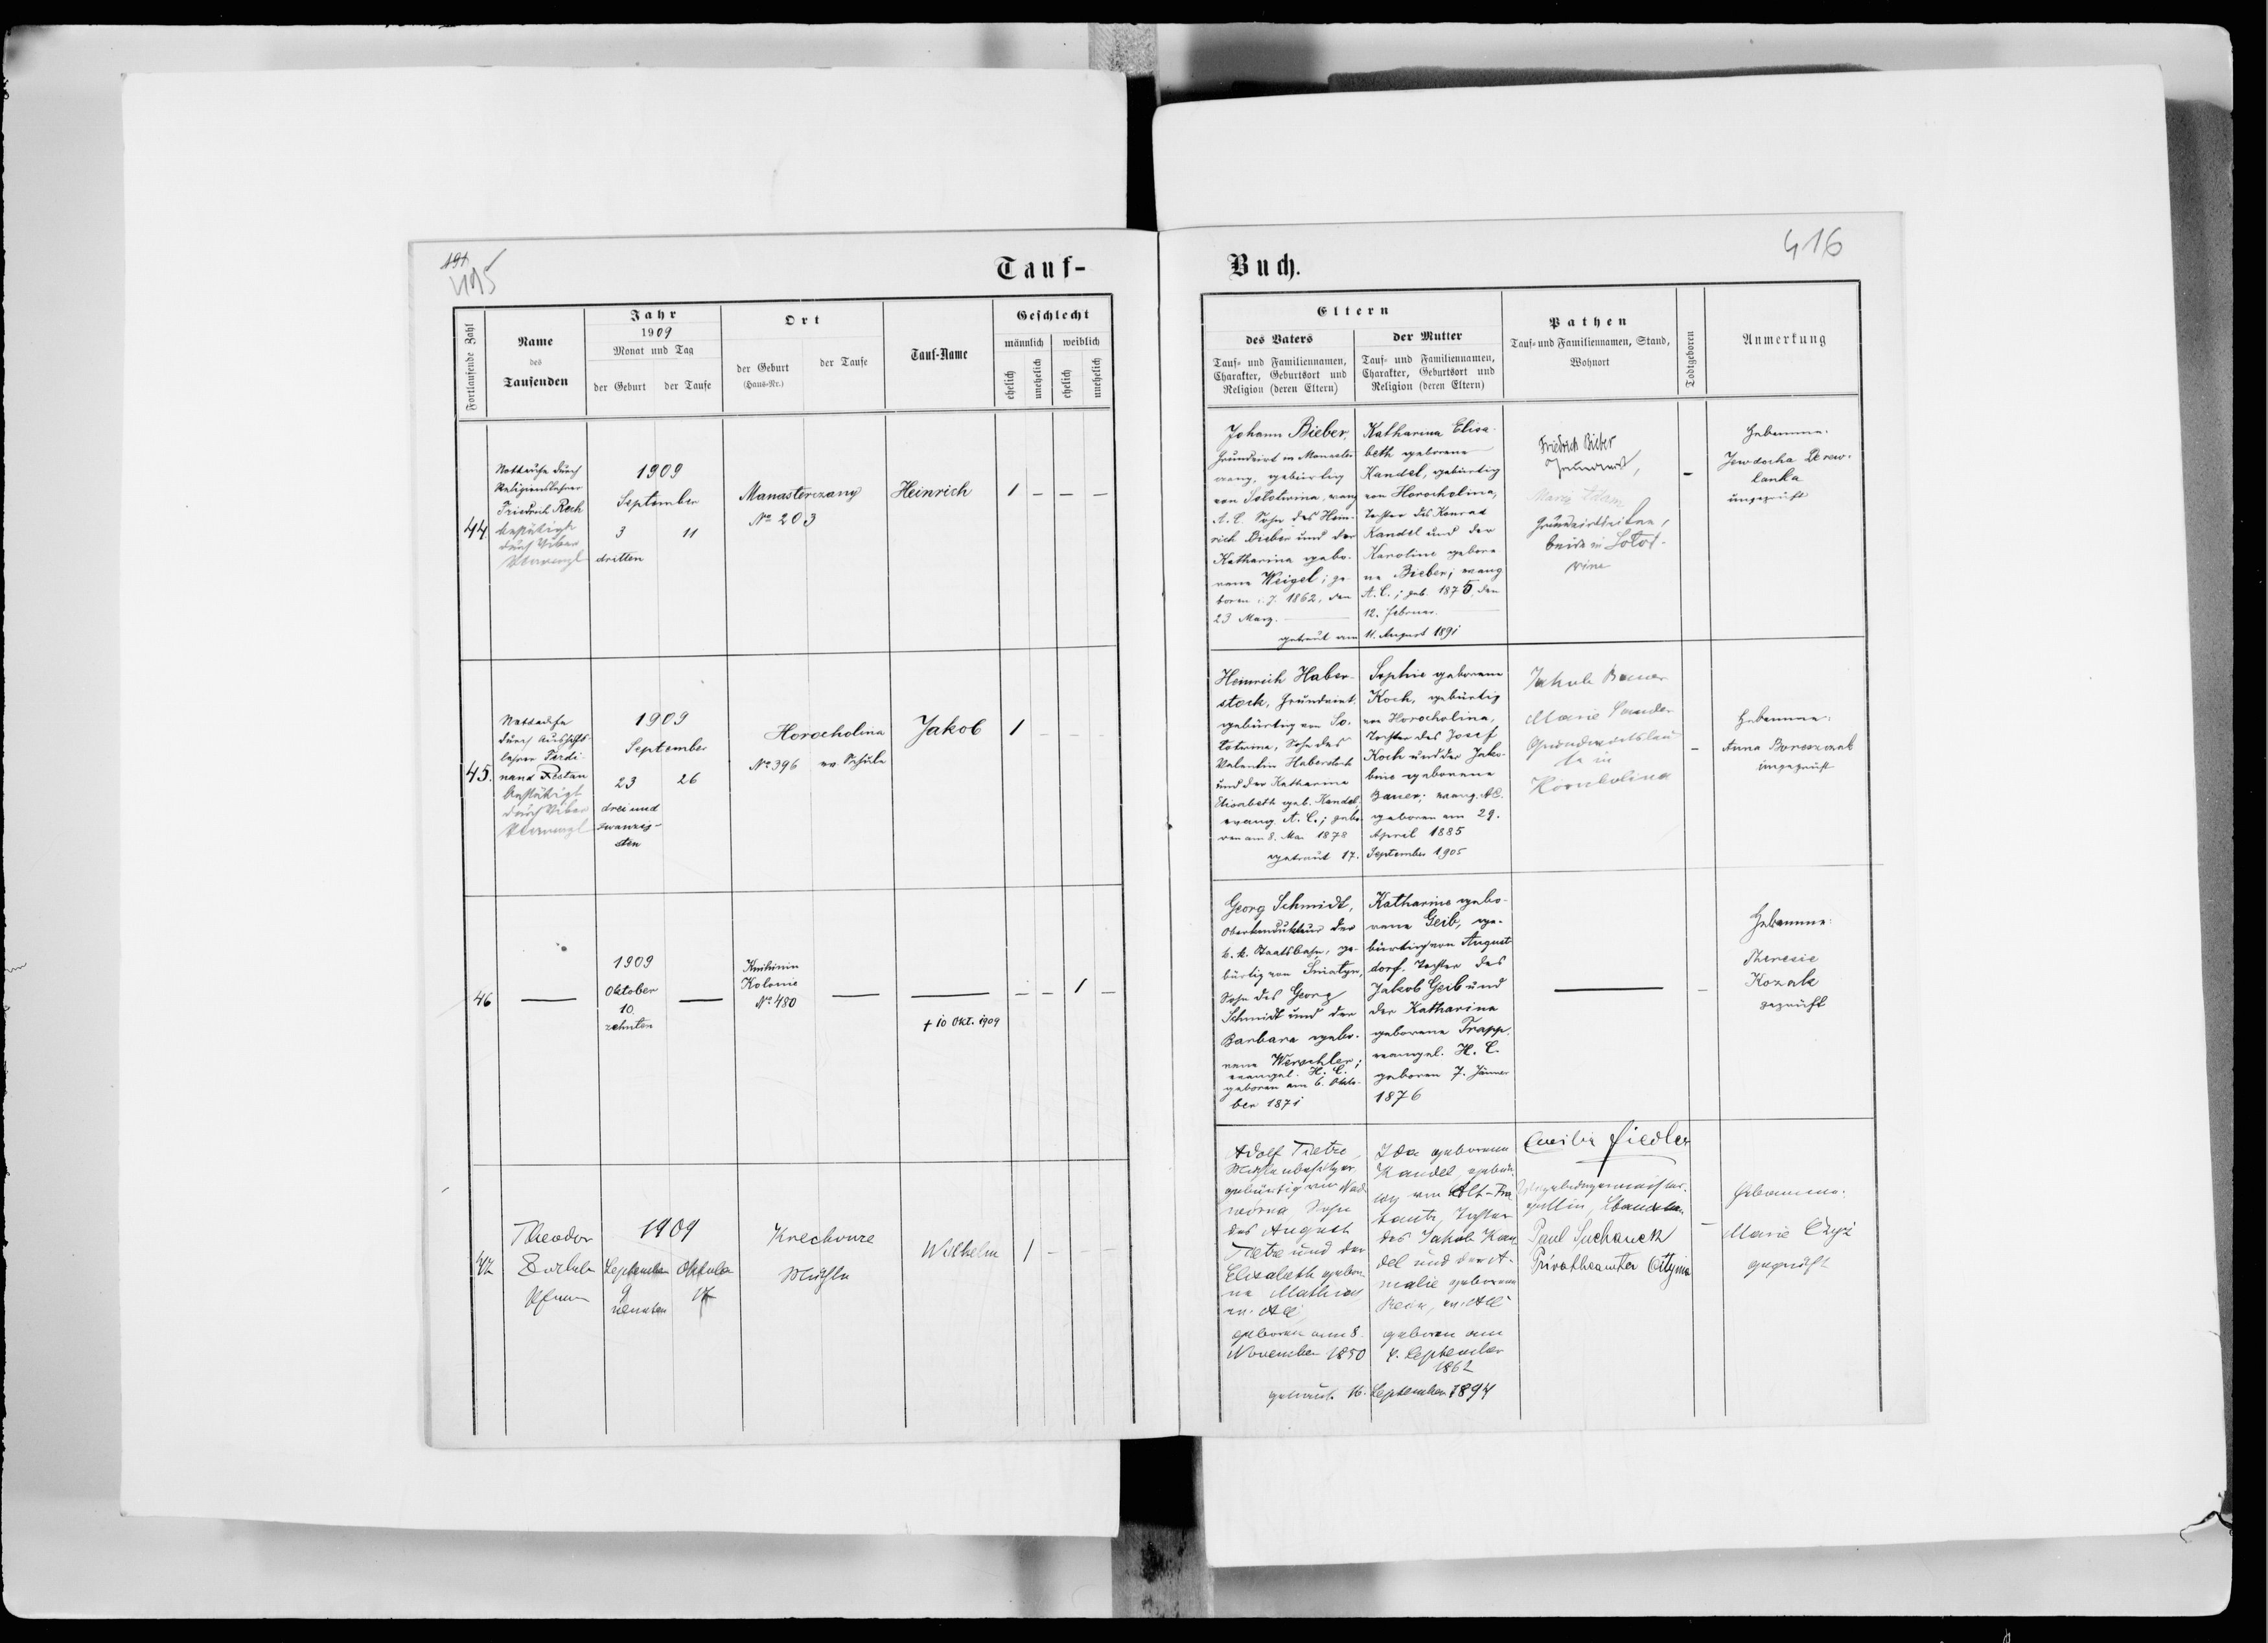 191
415
416
Tauf-
Buch.
Fortlaufende Zahl
Name
des
Taufenden
Jahr
1909
Monat und Tag
der Geburt
der Taufe
Ort
der Geburt
(Haus-Nr.)
der Taufe
Tauf-Name
Geschlecht
männlich
weiblich
ehelich
unehelich
ehelich
unehelich
Eltern
des Vaters
Tauf- und Familiennamen,
Charakter, Geburtsort und
Religion (deren Eltern)
der Mutter
Tauf- und Familiennamen,
Charakter, Geburtsort und
Religion (deren Eltern)
Pathen
Tauf- und Familiennamen, Stand,
Wohnort
Todtgeboren
Anmerkung
44.
Nottaufe durch
Religionslehrer
Friedrich Rech
bestätigt
durch Vikar
1909
September
3
11
dritten
Manasterczany
No 203
Heinrich
1 – – –
Johann Bieber,
Grundwirt in Manaster-
czany, gebürtig
von Solotwina, evang.
A. C. Sohn des Hein-
rich Bieber und der
Katharina gebo-
rene Weigel; ge-
boren i. J. 1862, den
23 März.
Katharina Elisa-
beth geborene
Kandel, gebürtig
von Horocholina,
Tochter des Konrad
Kandel und der
Karoline gebore-
ne Bieber; evang.
A. C.; geb. 1875, den
12. Februar.
getraut am 11. August 1891
Friedrich Bieber
Grundwirtsleute,
beide in Solot-
wina
–
Hebamme:
Jewdocha Derew-
lanka
ungeprüft
45.
Nottaufe
durch Aushilfs-
lehrer Ferdi-
nand
bestätigt
durch Vikar
1909
September
23
26
drei und
zwanzig-
sten
Horocholina
No 396
ev. Schule
Jakob
1 – – –
Heinrich Haber-
stock, Grundwirt,
gebürtig von So-
lotwina, Sohn des
Valentin Haberstock
und der Katharina
Elisabeth geb. Kandel,
evang. A. C.; gebo-
ren am 8. Mai 1878
Sophie geborene
Koch, gebürtig
von Horocholina,
Tochter des Josef
Koch und der Jako-
bine geborene
Bauer; evang. A. C.
geboren am 29.
April 1885
getraut 17. September 1905
Jakob Bauer
Marie
Grundwirtsleu-
te in
–
Hebamme:
Anna
ungeprüft
46
1909
Oktober
10.
zehnten
Knihinin
Kolonie
No 480
† 10 Okt. 1909
– – 1 –
Georg Schmidt,
Oberkondukteur der
k. k. Staatsbahn, ge-
bürtig von Sniatyn,
Sohn des Georg
Schmidt und der
Barbara gebo-
rene Werschler;
evangel. H. C.
geboren am 6. Okto-
ber 1871
Katharina gebo-
rene Geib, ge-
bürtig von August-
dorf, Tochter des
Jakob Geib und
der Katharina
geborene Trapp.
evangel. H. C.
geboren 7. Jänner
1876
–
Hebamme:
Theresie
Kozak
geprüft
47
Theodor
Zöckler
Pfarrer
1909
September
9
neunten
Oktober
17
Krechowce
Mühle
Wilhelm
1 – – –
Adolf Tietze,
Mühlenbesitzer,
gebürtig von Nad-
worna, Sohn
des August
Tietze und der
Elisabeth gebore-
ne Mathias
ev. AC
geboren am 8.
November 1850
Ida geborene
Kandel, gebür-
tig von Alt-
Tochter
des Jakob Kan-
del und der A-
malie geborene
ev. AC
geboren am
4. September
1862
getraut 16. September 1894
Fiedler
Paul Suchanek
Privatbeamter Ottynia
–
Hebamme:
Marie
geprüft